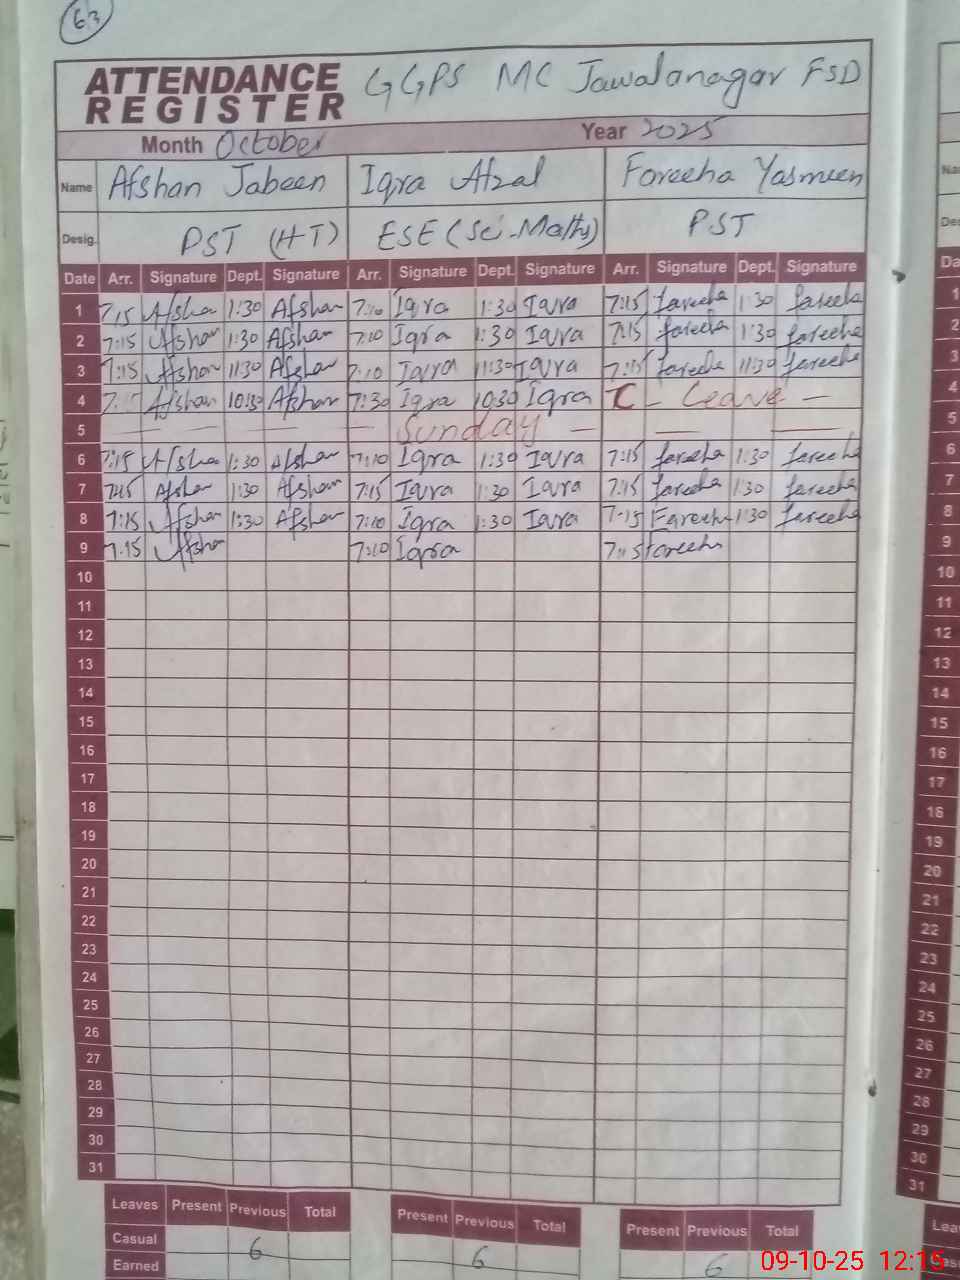 63
ATTENDANCE REGISTER GGPS MC Jawalanagar FSD
Month October Year 2025
Name Afshan Jabeen Iqra Afzal Fareeha Yasmeen
Desig. PST (HT) ESE (Sci-Math) PST
Date Arr. Signature Dept. Signature Arr. Signature Dept. Signature Arr. Signature Dept. Signature
1 7:15 Afshan 1:30 Afshan 7:10 Iqra 1:30 Iqra 7:15 fareeha 1:30 fareeha
2 7:15 Afshan 1:30 Afshan 7:10 Iqra 1:30 Iqra 7:15 fareeha 1:30 fareeha
3 7:15 Afshan 11:30 Afshan 7:10 Iqra 11:30 Iqra 7:15 fareeha 11:30 fareeha
4 7:15 Afshan 10:30 Afshan 7:30 Iqra 10:30 Iqra C - Leave -
5 - - - - Sunday - - -
6 7:15 Afshan 1:30 Afshan 7:10 Iqra 1:30 Iqra 7:15 fareeha 1:30 fareeha
7 7:15 Afshan 1:30 Afshan 7:15 Iqra 1:30 Iqra 7:15 fareeha 1:30 fareeha
8 7:15 Afshan 1:30 Afshan 7:10 Iqra 1:30 Iqra 7:15 Fareeha 1:30 fareeha
9 7:15 Afshan 7:10 Iqra 7:15 fareeha
10
11
12
13
14
15
16
17
18
19
20
21
22
23
24
25
26
27
28
29
30
31
Leaves Present Previous Total Present Previous Total Present Previous Total
Casual 6 6 6
Earned
09-10-25 12:15